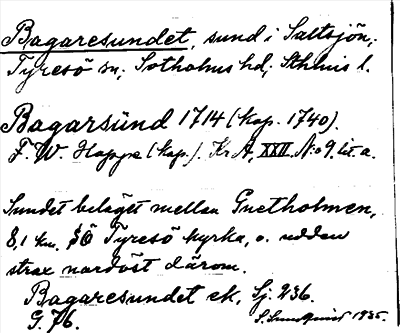 Bagaresundet, sund i Saltsjön,
Tyresö sn, Sotholms hd, Sthlms l.
Bagarsund 1714 (kop. 1740).
F. W. Hoppe (kop.). Kr A, XXII. N:o 9. lit. a.
Sundet beläget mellan Gnetholmen,
8,1 km. SÖ Tyresö kyrka, o. udden
strax nordöst därom.
Bagaresundet ek. Sj. 236.
G. 76.
S. Sundqvist 1935.